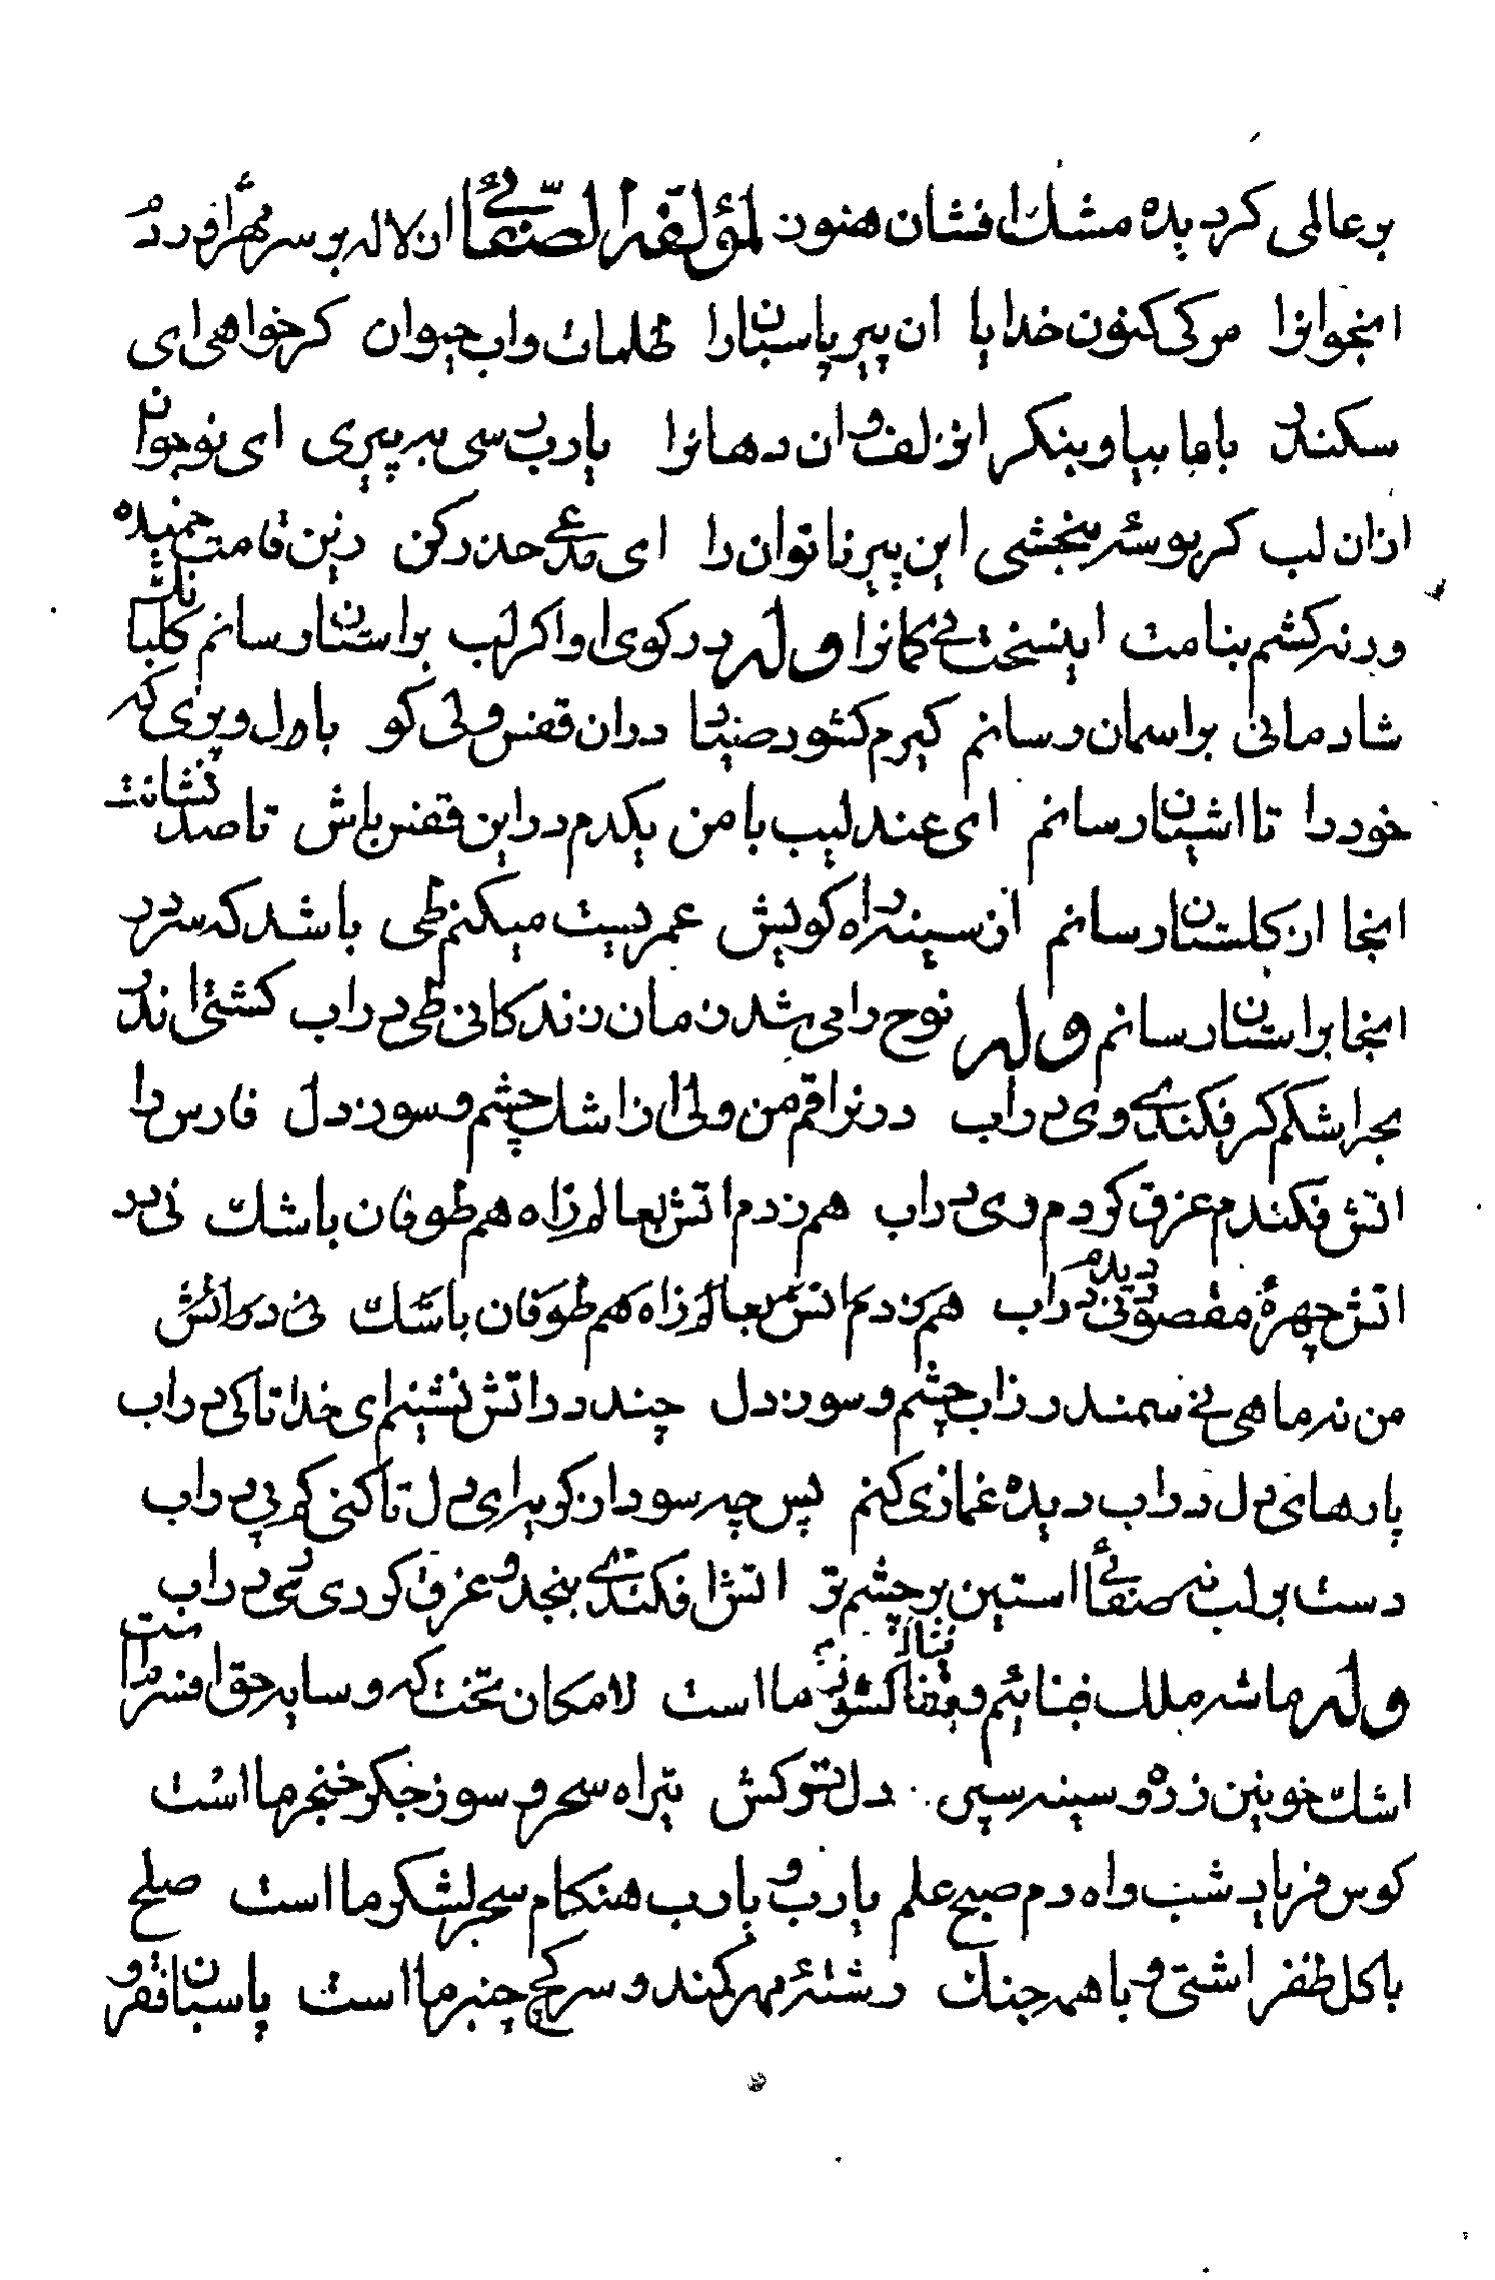 بر عالمی کردیده مشك افشان هنوز لمؤلفه الصنعائی از لاله بر سر مهر افزود
اینجوانرا مرکی کنون خدایا ان پیر پاسبانرا ظلمات و اب حیوان کر خواهی ای
سکندر باما بیا و بنکر انزلف و ان دهانرا یارب رسی به پیری ای نوجوان
ازان لب کر بوسهٔ ببخشی این پیر ناتوان را ای مدعی حذر کن زین قامت خمیده
ورنه کشم بنامت اینسخت بی کمانرا وله در کوی او اکر لب بر استان رسانم کلبانك
شادمانی بر اسمان رسانم کیرم کشود صیاد در ان قفس ولی کو بال و پری که
خود را تا اشیان رسانم ای عندلیب با من یکدم در این قفس باش تا صد نشانت
اینجا از کلستان رسانم از سینه راه کویش عمریست میکنم طی باشد که سر در
اینجا بر استان رسانم وله نوح را می شد زمان زندکانی طی در اب کشتی اندر
بحر اشکم کر فکندی وی در اب در فراقم من ولی از اشك چشم و سوز دل فارس را
اتش فکندم غرق کردم ری در اب هم زدم اتش بعالم زاه هم طوفان باشك نی در
اتش چهرهٔ مقصود دیدم نی در اب هم زدم اتش بعالم زاه هم طوفان باشك نی در اتش
من نه ماهی نی سمندر زاب چشم و سوز دل چند در اتش نشینم ای خدا تا کی در اب
پارهای دل در اب دیده غمازی کنم پس چه سود از کویرای دل تا کنی کم پی در اب
دست بر لب نه صنعائی استین بر چشم تر اتش افکندی بنجد و غرق کردی ری در اب
وله ما شه ملك فنائیم و بقا کشور ما است لامکان تخت که و سایه حق افسر ما است
اشك خونین زره و سینه سپر دل ترکش تیر اه سحر و سوز جکر خنجر ما است
کوس فریاد شب واه دم صبح علم یارب و یارب هنکام سحر لشکر ما است صلح
با کل ظفر اشتی و با همه جنك رشتهٔ مهر کمند و سر کج چنبر ما است پاسبان فقر و